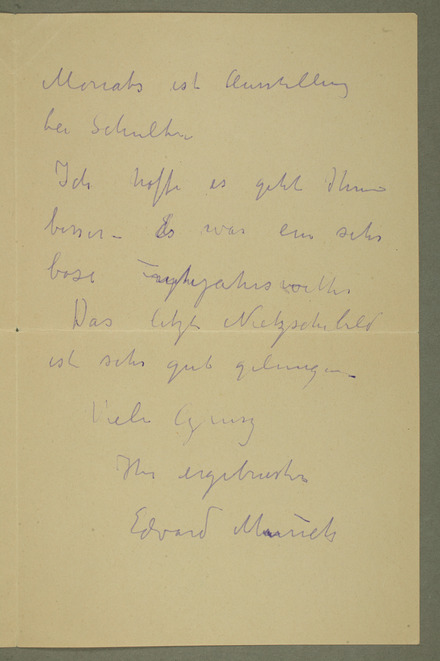 Monats ist Ausstellung
bei Schulte.
Ich hoffe es geht Ihnen
besser – Es war ein sehr
böse Frühjahrswetter
Das letzte Nietzschebild
ist sehr gut gelungen –
Viele Gruß
Ihr ergebenster
Edvard Munch